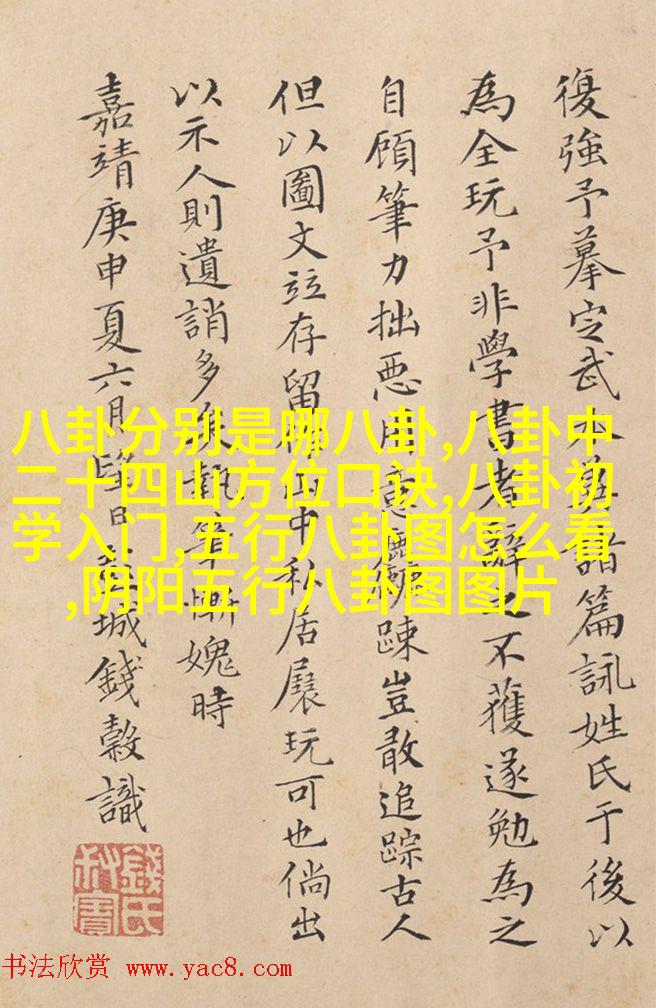 復強予摹定武本并諸篇詠姓氏于後以
為全玩予非學書者辭之不獲遂勉為之
自顧筆力拙惡用意麤踈豈敢追踪古人
但以圖文竝存留山中私居展玩可也倘出
以示人則遺誚多矣執筆慚媿時
嘉靖庚申夏六月望日彭城錢榖識
錢氏
叔寶
八卦分别是哪八卦,八卦中
二十四山方位口诀,八卦初
学入门,五行八卦图怎么看
,阴阳五行八卦图图片
书法欣赏 www.yac8.com